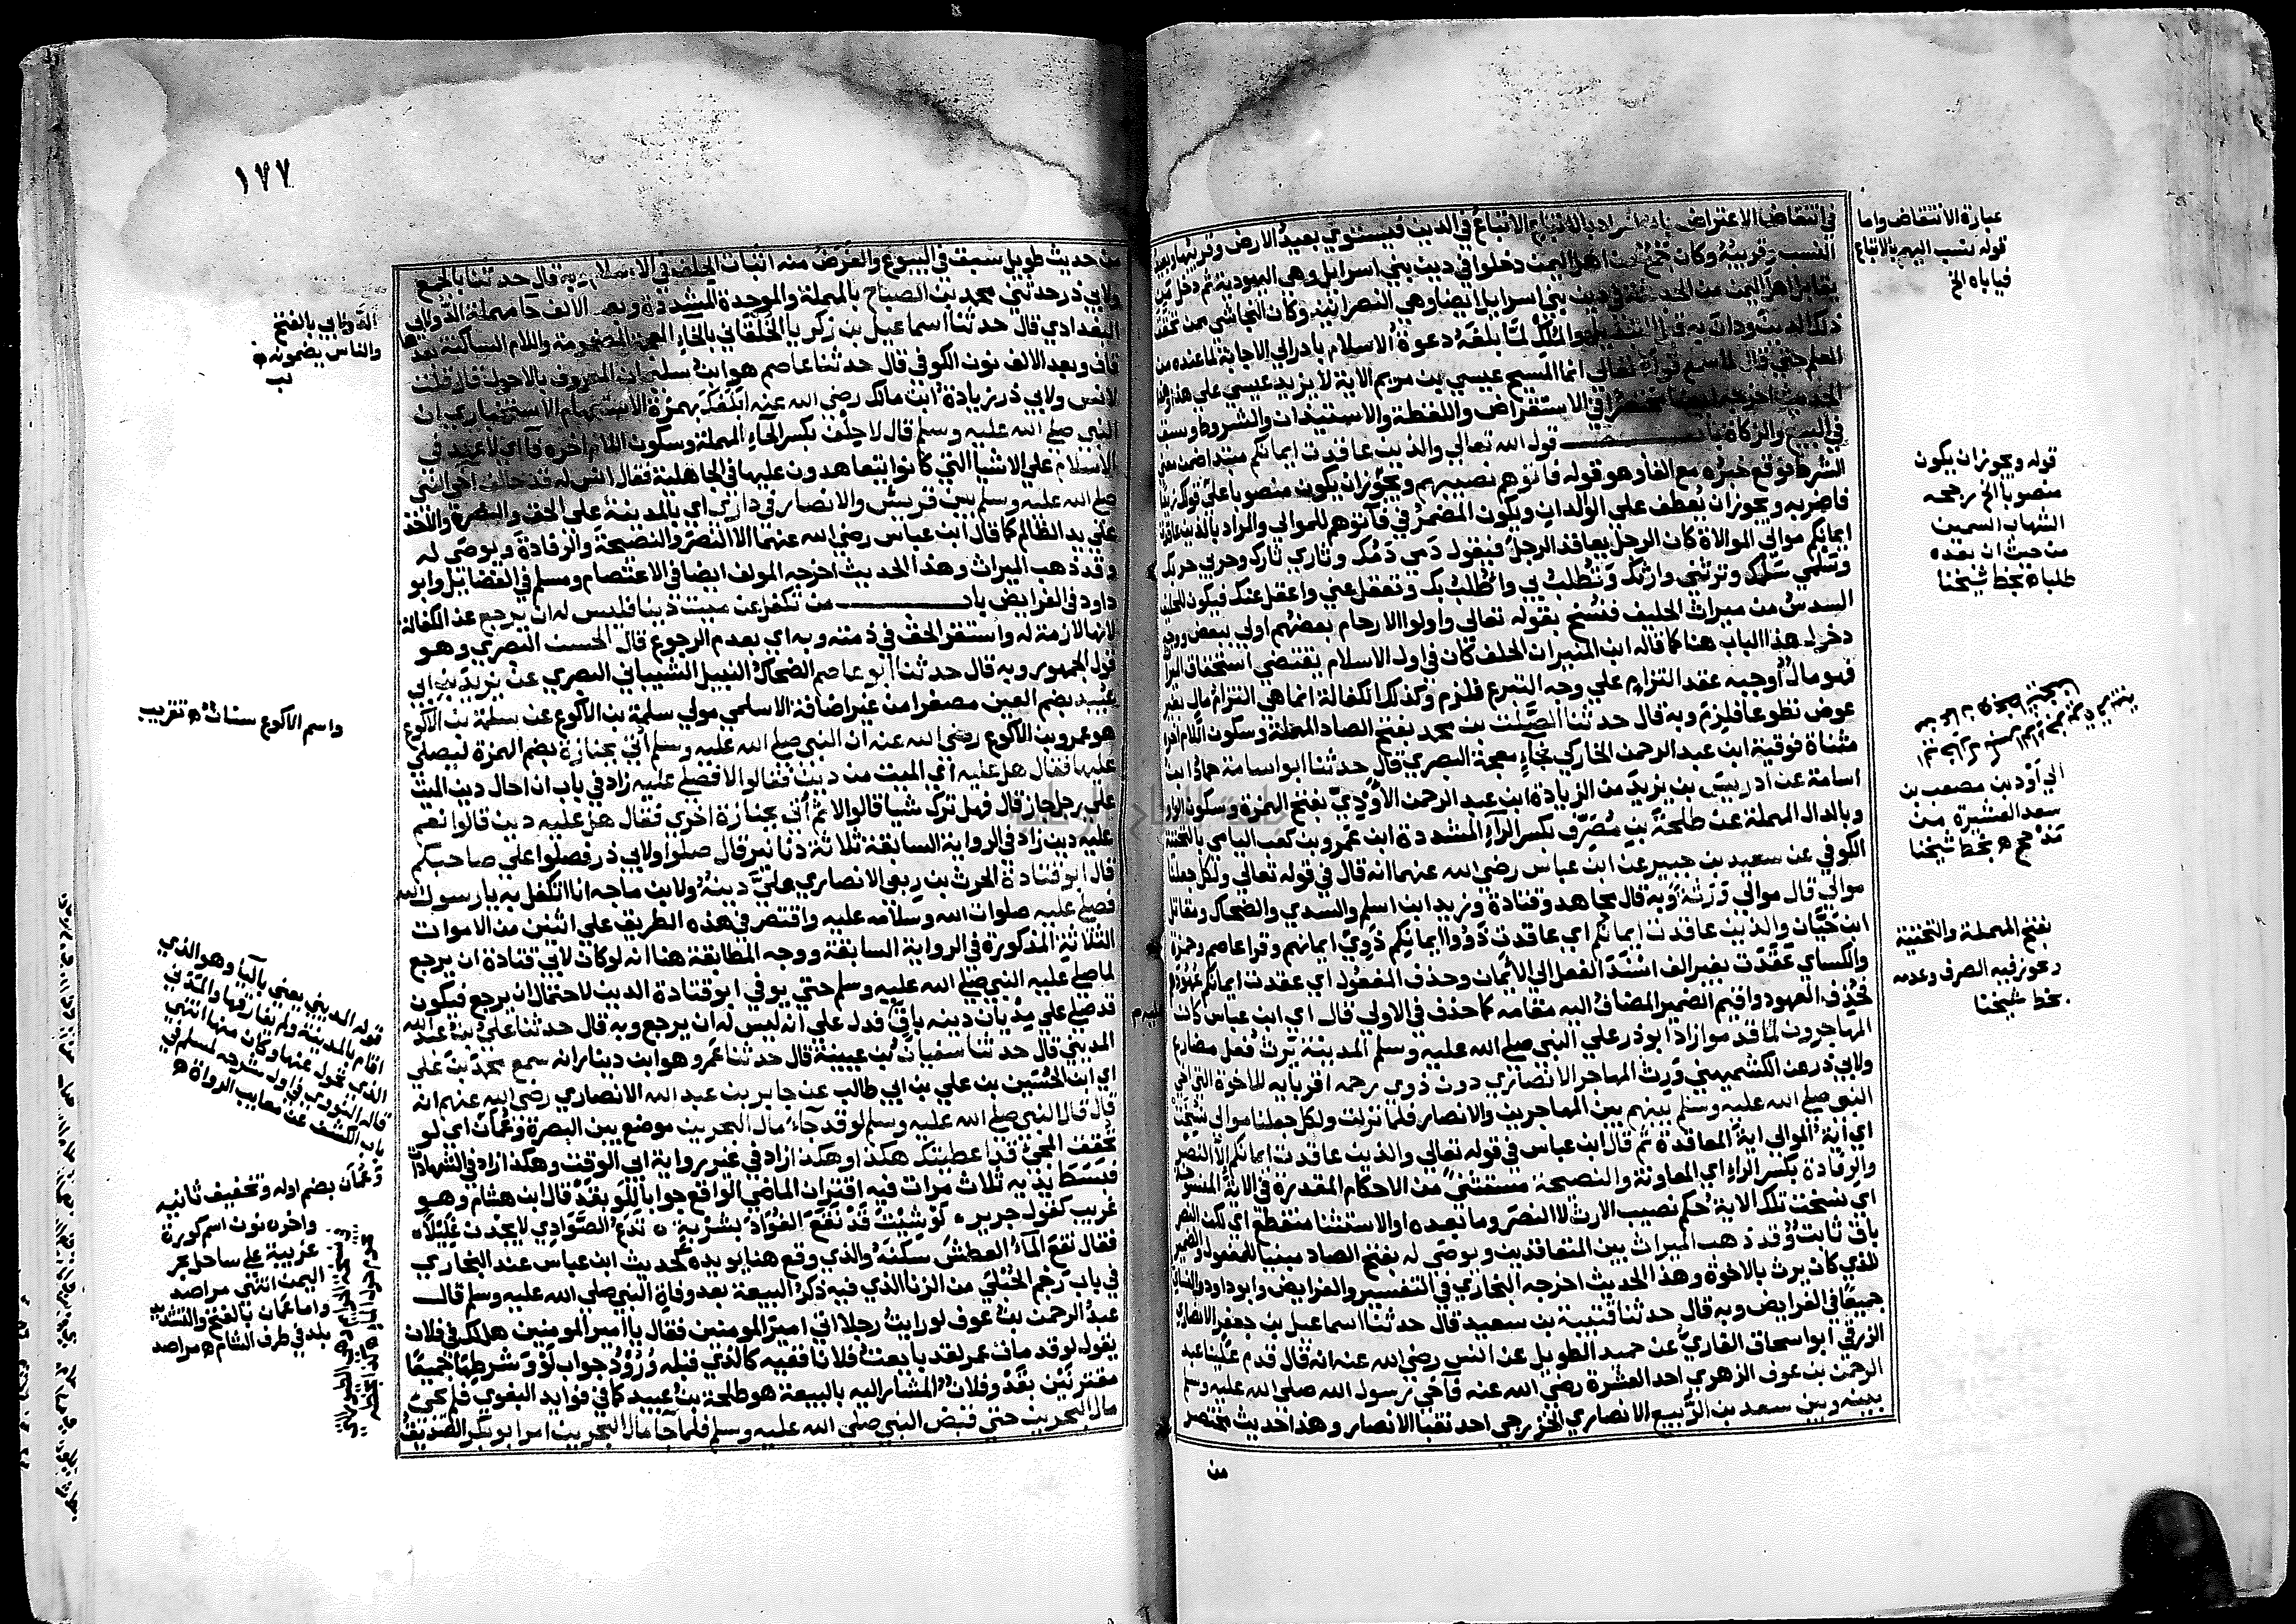 في انتقاض الاعتراض بان المراد بالاتباع الاتباع في الدين فيستوي بعيد الارض وقريبها وبعيد
النسب وقريبه وكان اهل اليمن دخلوا في دين بني اسرايل وهي اليهودية ثم دخل من
يقابل اهل اليمن من الحبشة في دين بني اسرايل ايضا وهي النصرانية وكان النجاشي ممن تحقق
ذلك الدين ودان به والملك لما بلغه دعوة الاسلام بادر الي الاجابة لما عنده من
العلم حتي قال لما سمع قوله تعالي انما المسيح عيسي بن مريم الاية لا يزيد عيسي علي هذا
الحديث اخرجه ايضا مختصرا في الاستقراض واللقطة والاستيذان والشروط وسبق
في البيع والزكاة باب قول الله تعالي والذين عاقدت ايمانكم مبتدا ضمن معني
الشرط فوقع خبره مع الفا وهو قوله فاتوهم نصيبهم ويجوز ان يكون منصوبا علي قولك زيدا
فاضربه ويجوز ان يعطف علي الوالدان ويكون المضمر في فآتوهم للموالي والمراد بالذين عاقدت
ايمانكم موالي الموالاة كان الرجل يعاقد الرجل فيقول دمي دمك وثاري ثارك وحربي حربك
وسلمي سلمك وترثني وارثك وتطلب بي واطلب بك وتعقل عني واعقل عنك فيكون للحليف
السدس من ميراث الحليف فنسخ بقوله تعالي واولوا الارحام بعضهم اولي ببعض ووجه
دخول هذا الباب هنا كما قاله ابن المنير ان الحلف كان في اول الاسلام يقتضي استحقاق الميراث
فهو مال اوجبه عقد التزام علي وجه التبرع فلزم وكذلك الكفالة انما هي التزام مال بغير
عوض تطوعا فلزم وبه قال حدثنا الصلت بن محمد بفتح الصاد المهملة وسكون اللام اخره
مثناة فوقية ابن عبد الرحمن الخاركي بخاء معجمة البصري قال حدثنا ابو اسامة حماد ابن
اسامة عن ادريس بن يزيد من الزيادة ابن عبد الرحمن الاودي بفتح الهمزة وسكون الواو
وبالدال المهملة عن طلحة بن مصرف بكسر الراء المشددة ابن عمرو بن كعب اليامي بالتحتية
الكوفي عن سعيد بن جبير عن ابن عباس رضي الله عنهما انه قال في قوله تعالي ولكل جعلنا
موالي قال موالي ورثة وبه قال مجاهد وقتادة وزيد ابن اسلم والسدي والضحاك ومقاتل
ابن حيان والذين عاقدت ايمانكم اي عاقدت ذووا ايمانكم ذوي ايمانهم وقرا عاصم وحمزة
والكساي عقدت بغير الف اسند الفعل الي الايمان وحذف المفعول اي عقدت ايمانكم عهودهم
فحذف العهود واقيم الضمير المضاف اليه مقامه كما حذف في الاولي قال اي ابن عباس كان
المهاجرون لما قدموا زاد ابو ذر علي النبي صلي الله عليه وسلم المدينة يرث فعل مضارع
ولابي ذر عن الكشميهني ورث المهاجر الانصاري دون ذوي رحمه اقربايه للاخوة التي اخي
النبي صلي الله عليه وسلم بينهم بين المهاجرين والانصار فلما نزلت ولكل جعلنا موالي نسخت
اي اية الموالي اية المعاقدة ثم قال ابن عباس في قوله تعالي والذين عاقدت ايمانكم الا النصر
والرفادة بكسر الراء اي المعاونة والنصيحة مستثني من الاحكام المقدرة في الاية المنسوخة
اي نسخت تلك الاية حكم نصيب الارث لا النصر وما بعده او الاستثنا منقطع اي لكن النصر
باق ثابت وقد ذهب الميراث بين المتعاقدين ويوصي له بفتح الصاد مبنيا للمفعول والضمير
للذي كان يرث بالاخوة وهذا الحديث اخرجه البخاري في التفسير والفرايض وابو داود والنساي
جميعا في الفرايض وبه قال حدثنا قتيبة بن سعيد قال حدثنا اسماعيل بن جعفر الانصاري
الزرقي ابو اسحاق القاري عن حميد الطويل عن انس رضي الله عنه انه قال قدم علينا عبد
الرحمن بن عوف الزهري احد العشرة رضي الله عنه فآخي رسول الله صلي الله عليه وسلم
بينه وبين سعد بن الربيع الانصاري الخزرجي احد نقبا الانصار وهذا حديث مختصر
من
عبارة الانتقاض واما
قوله نسب اليهم بالاتباع
فياباه الخ
قوله ويجوز ان يكون
منصوبا الخ رجحه
الشهاب السمين
من حيث ان بعده
طلبا ه بخط شيخنا
الي اود بن مصعب بن
سعد العشيرة من
مذحج ه بخط شيخنا
بفتح المهملة والتحتية
ويجوز فيه الصرف وعدمه
بخط شيخنا
١٧٧
من حديث طويل سبق في البيوع والغرض منه اثبات الحلف في الاسلام وبه قال حدثنا بالجمع
ولابي ذر حدثني محمد بن الصباح بالمهملة والموحدة المشددة وبعد الالف حا مهملة الدولابي
البغدادي قال حدثنا اسماعيل بن زكريا الخلقاني بالخاء المعجمة المضمومة واللام الساكنة بعدها
قاف وبعد الالف نون الكوفي قال حدثنا عاصم هو ابن سليمان المعروف بالاحول قال قلت
لانس ولابي ذر زيادة ابن مالك رضي الله عنه ابلغك بهمزة الاستفهام الاستخباري ان
النبي صلي الله عليه وسلم قال لا حلف بكسر الحاء المهملة وسكون اللام اخره فا اي لا عهد في
الاسلام علي الاشيا التي كانوا يتعاهدون عليها في الجاهلية فقال انس له قد حالف اخي النبي
صلي الله عليه وسلم بين قريش والانصار في داري اي بالمدينة علي الحق والنصرة والاخذ
علي يد الظالم كما قال ابن عباس رضي الله عنهما الا النصر والنصيحة والرفادة ويوصي له
وقد ذهب الميراث وهذا الحديث اخرجه المولف ايضا في الاعتصام ومسلم في الفضايل وابو
داود في الفرايض باب من تكفل عن ميت دينا فليس له ان يرجع عن الكفالة
لانها لازمة له واستقر الحق في ذمته وبه اي بعدم الرجوع قال الحسن البصري وهو
قول الجمهور وبه قال حدثنا ابو عاصم الضحاك النبيل الشيباني البصري عن يزيد بن ابي
عبيد بضم العين مصغرا من غير اضافة الاسلمي مولي سلمة بن الاكوع عن سلمة بن الاكوع
هو عمرو بن الاكوع رضي الله عنه ان النبي صلي الله عليه وسلم اتي بجنازة بضم الهمزة ليصلي
عليها فقال هل عليه اي الميت من دين فقالوا لا فصلي عليه زاد في باب ان احال دين الميت
علي رجل جاز قال فهل ترك شيا قالوا لا ثم اتي بجنازة اخري فقال هل عليه دين قالوا نعم
عليه دين زاد في الرواية السابقة ثلاثة دنانير قال صلوا ولابي ذر فصلوا علي صاحبكم
قال ابو قتادة الحرث بن ربعي الانصاري علي دينه ولابن ماجه انا اتكفل به يا رسول الله
فصلي عليه صلوات الله وسلامه عليه واقتصر في هذه الطريق علي اثنين من الاموات
الثلاثة المذكورة في الرواية السابقة ووجه المطابقة هنا انه لو كان لابي قتادة ان يرجع
لما صلي عليه النبي صلي الله عليه وسلم حتي يوفي ابو قتادة الدين لاحتمال ان يرجع فيكون
قد صلي علي مديان دينه باق فدل علي انه ليس له ان يرجع وبه قال حدثنا علي بن عبد الله
المديني قال حدثنا سفيان بن عيينة قال حدثنا عمرو هو ابن دينار انه سمع محمد بن علي
اي ابن الحسين بن علي بن ابي طالب عن جابر بن عبد الله الانصاري رضي الله عنهم انه
قال قال النبي صلي الله عليه وسلم لو قد جاء مال البحرين موضع بين البصرة وعمان اي لو
تحقق المجئ قد اعطيتك هكذا وهكذا زاد في غير رواية ابي الوقت وهكذا زاد في الشهادات
فبسط يديه ثلاث مرات فيه اقتران الماضي الواقع جوابا للو بقد قال ابن هشام وهو
غريب كقول جرير ه لو شيت قد نقع الفواد بشربة ه تدع الصوادي لا يجدن غليلا ه
فقال نقع الماء العطش سكنه والذي وقع هنا يويده كحديث ابن عباس عند البخاري
في باب رجم الحبلي من الزنا الذي فيه ذكر البيعة بعد وفاة النبي صلي الله عليه وسلم قال
عبد الرحمن بن عوف لو رايت رجلا اتي امير المومنين فقال يا امير المومنين هل لك في فلان
يقول لو قد مات عمر لقد بايعت فلانا ففيه كالذي قبله ورود جواب لو وشرطها جميعا
مقترنين بقد وفلان المشار اليه بالبيعة هو طلحة بن عبيد كما في فوايد البغوي فلم يجئ
مال البحرين حتي قبض النبي صلي الله عليه وسلم فلما جا مال البحرين امر ابو بكر الصديق
الدولابي بالفتح
والناس يضمونه ه
لب
واسم الاكوع سنان ه تقريب
قوله المديني يعني بالياء وهو الذي
اقام بالمدينة ولم يفارقها والمدني
الذي تحول عنها وكان منها انتهي
قاله النووي في اول شرحه لمسلم في
باب الكشف عن معايب الرواة ه
وعمان بضم اوله وتخفيف ثانيه
واخره نون اسم كورة
عربية علي ساحل بحر
اليمن انتهي مراصد
واما عمان بالفتح والتشديد
بلد في طرف الشام ه مراصد